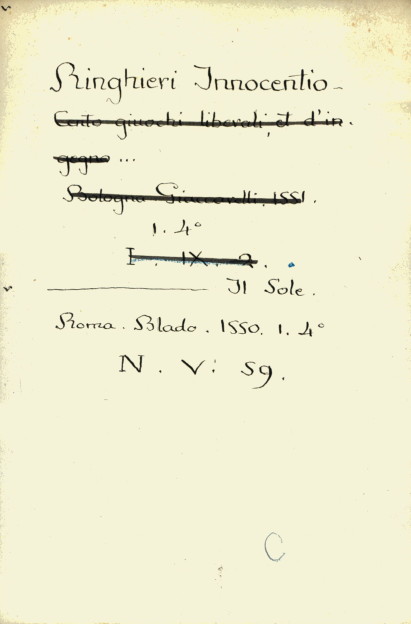 Ringhieri Innocentio-
Cento giuochi liberali, et d'in.
gegno ...
Bologna Giaccarelli. 1551.
1. 4°
I. IX. 2.
Il Sole.
Roma. Blado. 1550. 1. 4°
N. V: 59.
C